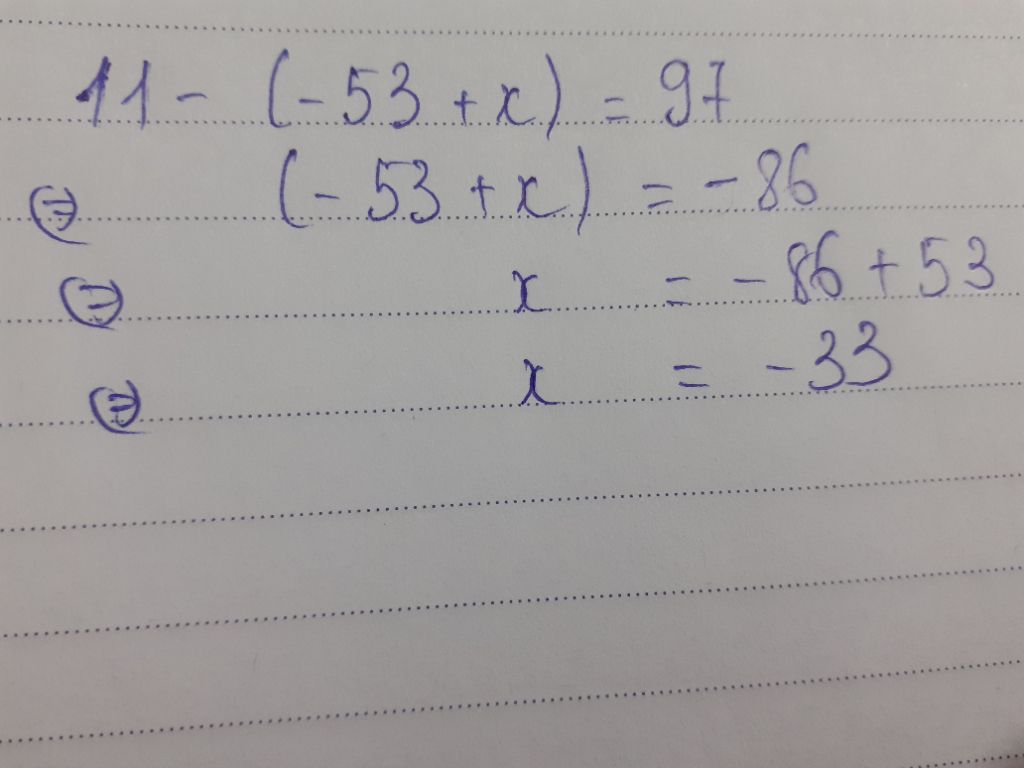 11 - (-53 + x) = 97
⇔ (-53 + x) = -86
⇔ x = -86 + 53
⇔ x = -33